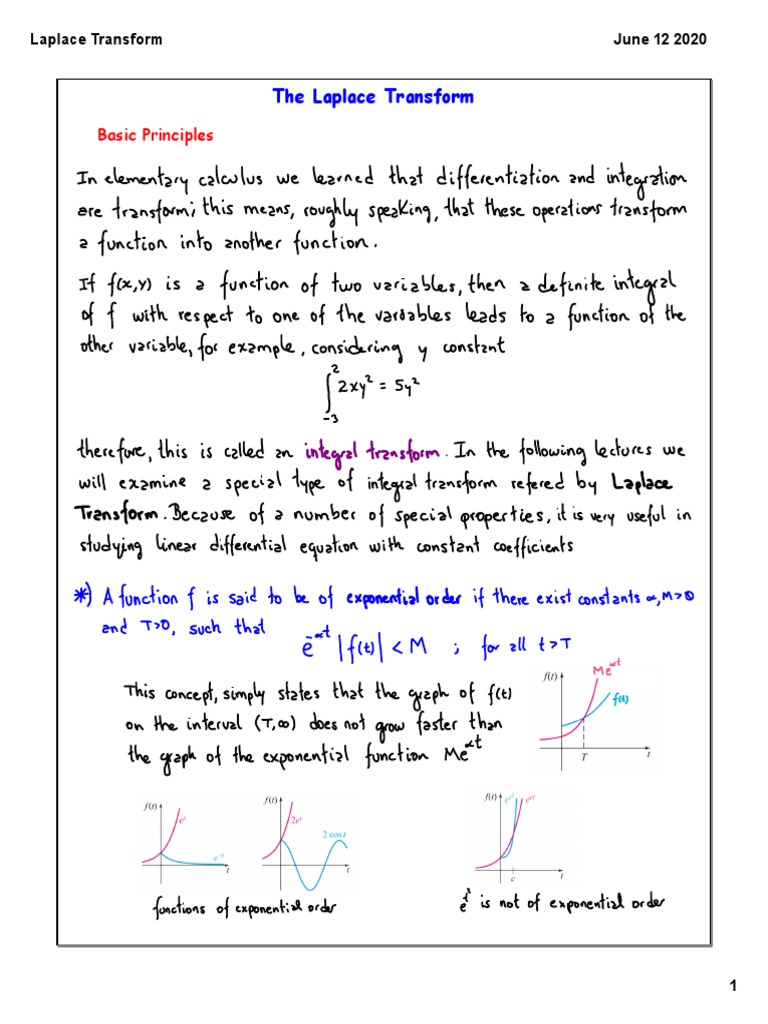 Laplace Transform June 12 2020
The Laplace Transform
Basic Principles
In elementary calculus we learned that differentiation and integration
are transform; this means, roughly speaking, that these operations transform
a function into another function.
If f(x,y) is a function of two variables, then a definite integral
of f with respect to one of the variables leads to a function of the
other variable, for example, considering y constant
∫_{-3}^{2} 2xy² = 5y²
therefore, this is called an integral transform. In the following lectures we
will examine a special type of integral transform refered by Laplace
Transform. Because of a number of special properties, it is very useful in
studying linear differential equation with constant coefficients
*) A function f is said to be of exponential order if there exist constants α, M>0
and T>0, such that
e^{-αt} |f(t)| < M ; for all t>T
This concept, simply states that the graph of f(t)
on the interval (T,∞) does not grow faster than
the graph of the exponential function Me^{αt}
f(t) Me^{αt}
f(t)
T t
f(t) e^t
e^{-t}
t
f(t) 2e^t
2 cos t
t
f(t) e^{t²} e^{ct}
c t
functions of exponential order
e^{t²} is not of exponential order
1